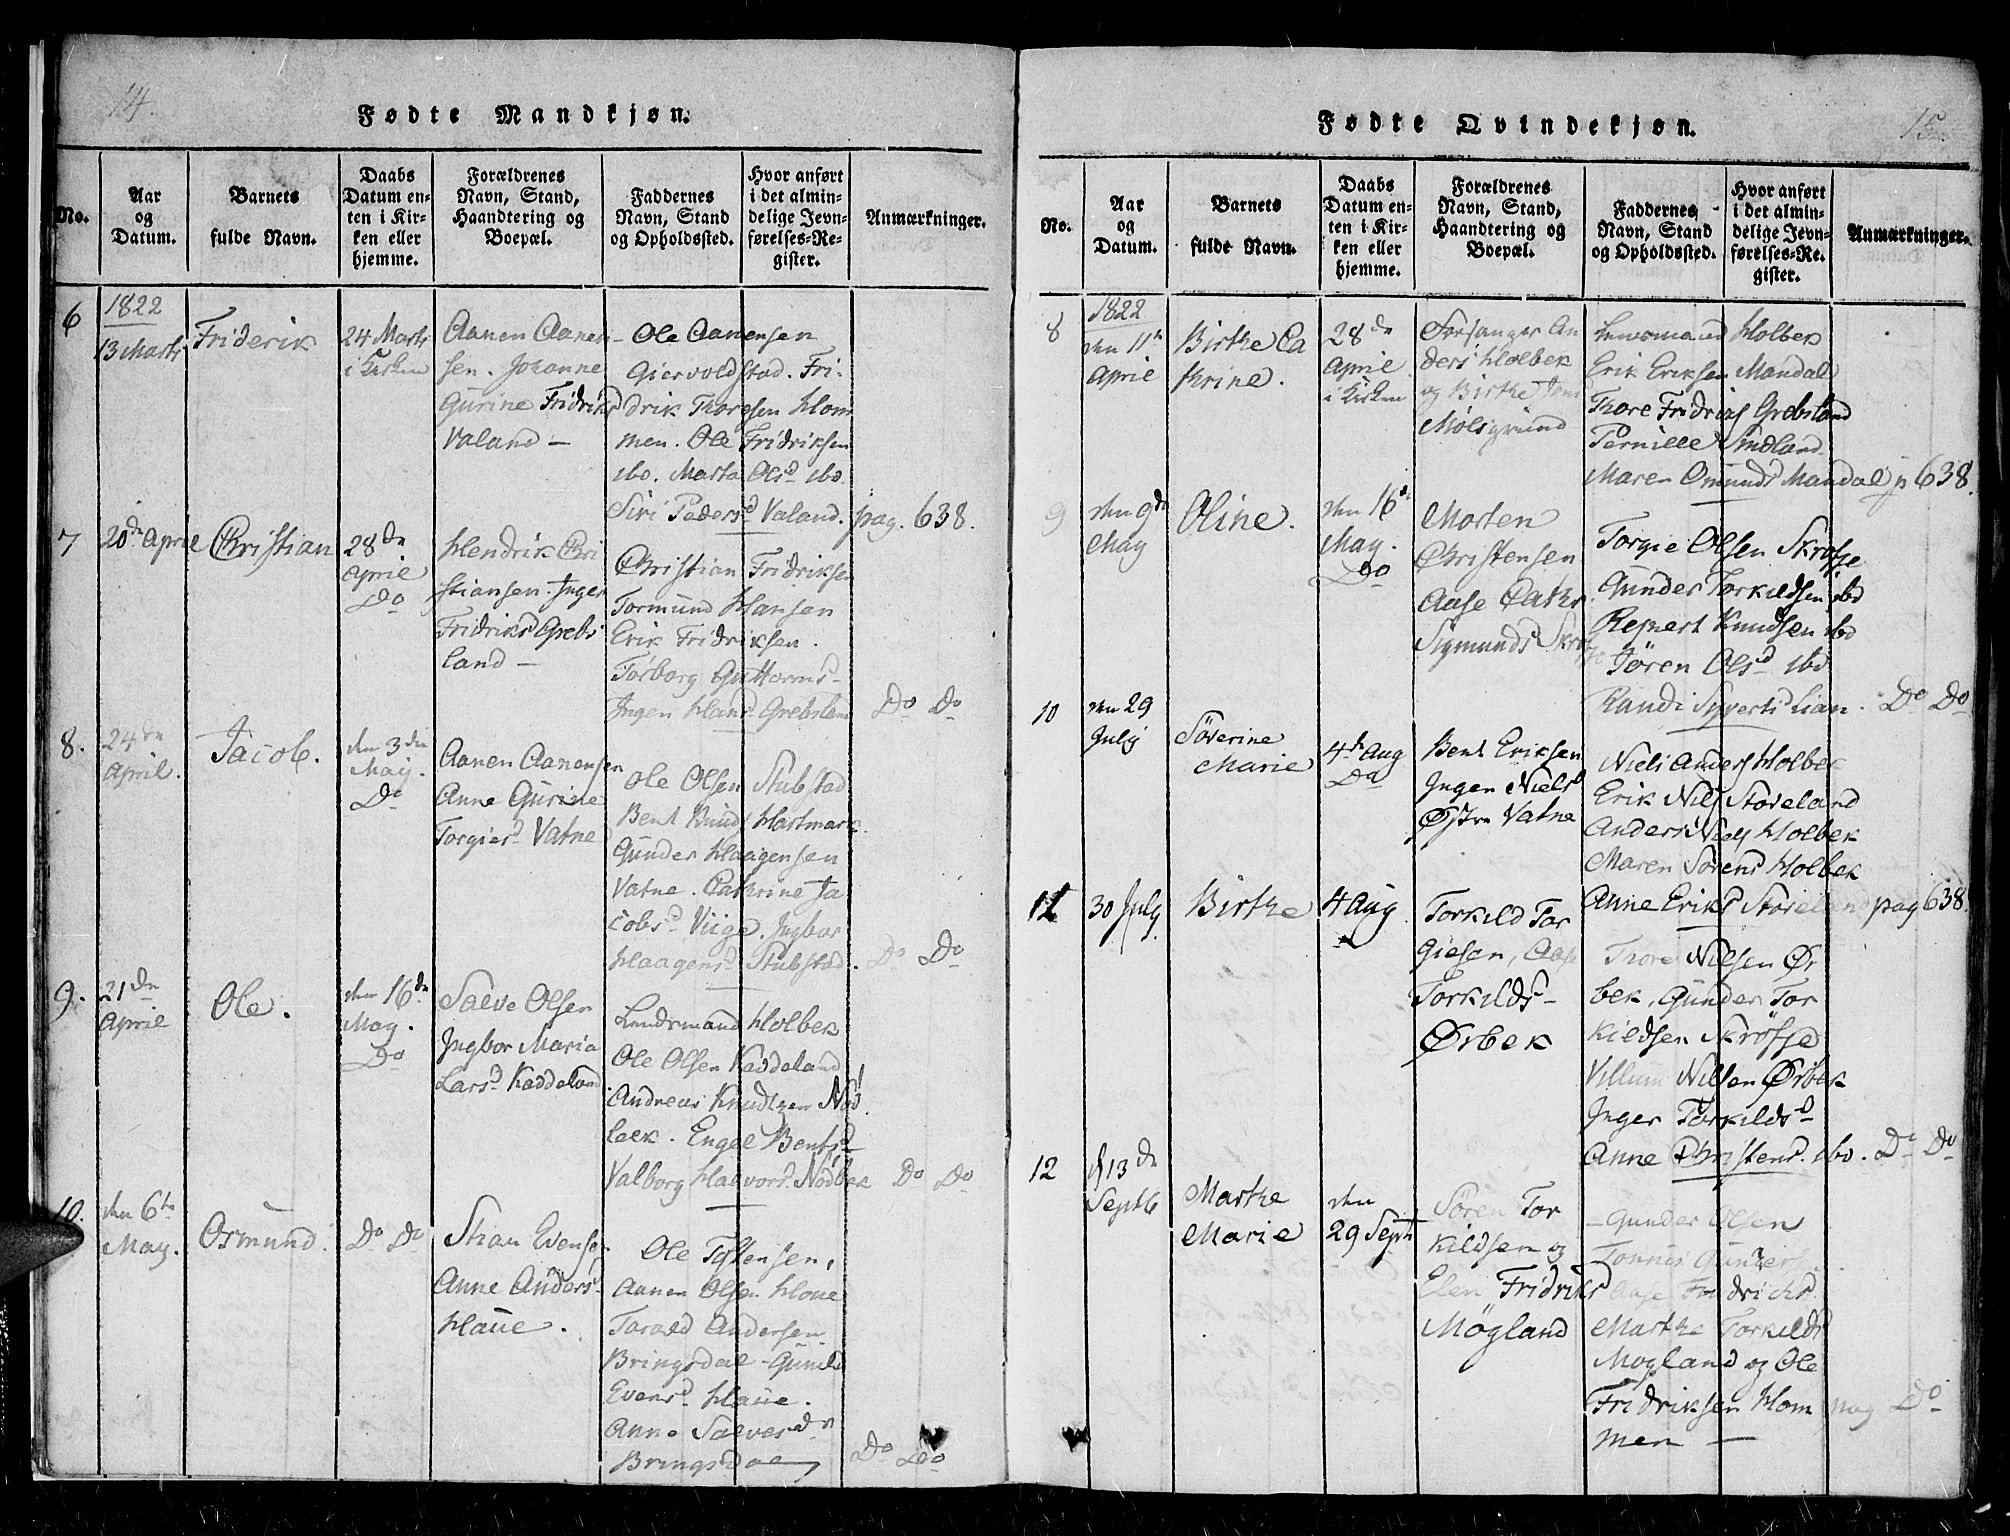 14.
Fødte Mandkjøn.
No.
Aar
og
Datum.
Barnets
fulde Navn.
Daabs
Datum en-
ten i Kir-
ken eller
hjemme.
Forældrenes
Navn, Stand,
Haandtering og
Boepæl.
Faddernes
Navn, Stand
og Opholdssted.
Hvor anført
i det almin-
delige Jevn-
førelses-Re-
gister.
Anmærkninger.
6
1822
13 Marts
Friderik
24 Marts
i Kirken
Aanen Aanen
sen. Johanne
Gurine Fridriks
Valand —
Ole Aanensen
Giervoldstad. Fri-
drik Thoresen Hom
men. Ole Fridriksen
ibd. Marta Olsd ibd.
Siri Pedersd Valand. pag. 638.
7
20de April
Christian
28de
April
Do
Hendrik Chri
stiansen. Inger
Fridriksd Grebs
land —
Christian Fridriksen
Tormund Hansen
Erik Fridriksen.
Torborg Guttorms-
Ingen Hansd Grebsland
Do Do
8.
24de
April.
Jacob.
den 3die
May.
Do
Aanen Aanensen
Anne Gurine
Torgiersd Vatne
Ole Olsen Stubstad
Bent Hartmark
Gunder Haagensen
Vatne. Cathrine Ja
cobsd Viige. Ingbor
Haagensd Stubstad. Do Do
9.
21de
April
Ole.
den 16de
May.
Do
Salve Olsen
Ingbor Maria
Larsd Kaddeland
Lendsmand Holbek
Ole Olsen Kaddeland
Andreas Knudtzen Nød
bek. Engel Bentsd
Valborg Halvorsd Nødbek Do Do
10.
den 6te
May.
Osmund.
Do Do
Stian Evensen
Anne Anders-
Haue.
Ole Tostensen,
Aanen Olsen Houe
Tarald Andersen
Bringsdal - Gunild
Evensd Haue.
Anne Salvesdr
Bringsdal
Do Do
15.
Fødte Qvindekjøn.
No.
Aar
og
Datum.
Barnets
fulde Navn.
Daabs
Datum en-
ten i Kir-
ken eller
hjemme.
Forældrenes
Navn, Stand,
Haandtering og
Boepæl.
Faddernes
Navn, Stand
og Opholdssted.
Hvor anført
i det almin-
delige Jevn-
førelses-Re-
gister.
Anmærkninger.
8
1822
den 11te
April
Birthe Ca
thrine.
28de
April
i Kirken
Forsanger An
ders Holbek
og Birthe
Mølsigrund
Lensmand Holbek
Erik Eriksen Mandal
Thore Fridrigs Grebsland
Pernille Smdland
Maren Omunds Mandal p 638.
9
den 9de
May
Oline.
den 16de
May.
Do
Morten
Christensen
Aase Cathr
Sigmunds Skrøfje
Torgie Olsen Skrøfje
Gunder Torkildsen ibd
Repert Knudsen ibd
Jøren Olsd ibd
Randi Syvertsd Lian. Do Do
10
den 29
July
Søverine
Marie
4de Aug
Do
Bent Eriksen
Ingen Nielsd
Østre Vatne
Niels Anders Holbek
Erik Nils Støreland
Anders Niels Holbek
Maren Sørensd Holbek
Anne Eriksd Støreland pag 638.
11
30 July
Birthe
4 Aug
Torkild Tor
giesen, Aase
Torkilds-
Ørbek
Thore Nilsen Ør
bek, Gunder Tor
kildsen Skrøfje
Villum Nilsen Ørbek
Inger Torkildsd
Anne Christensd. ibd. Do Do
12
d 13de
Septb
Marthe
Marie
den
29 Sept
Søren Tor
kildsen og
Elen Fridriksd
Møgland
— Gunder Olsen
Tønnes Gundersen
Aase Fridrichsd
Marthe Torkildsd
Møgland og Ole
Fridriksen Hom pag Do
men —